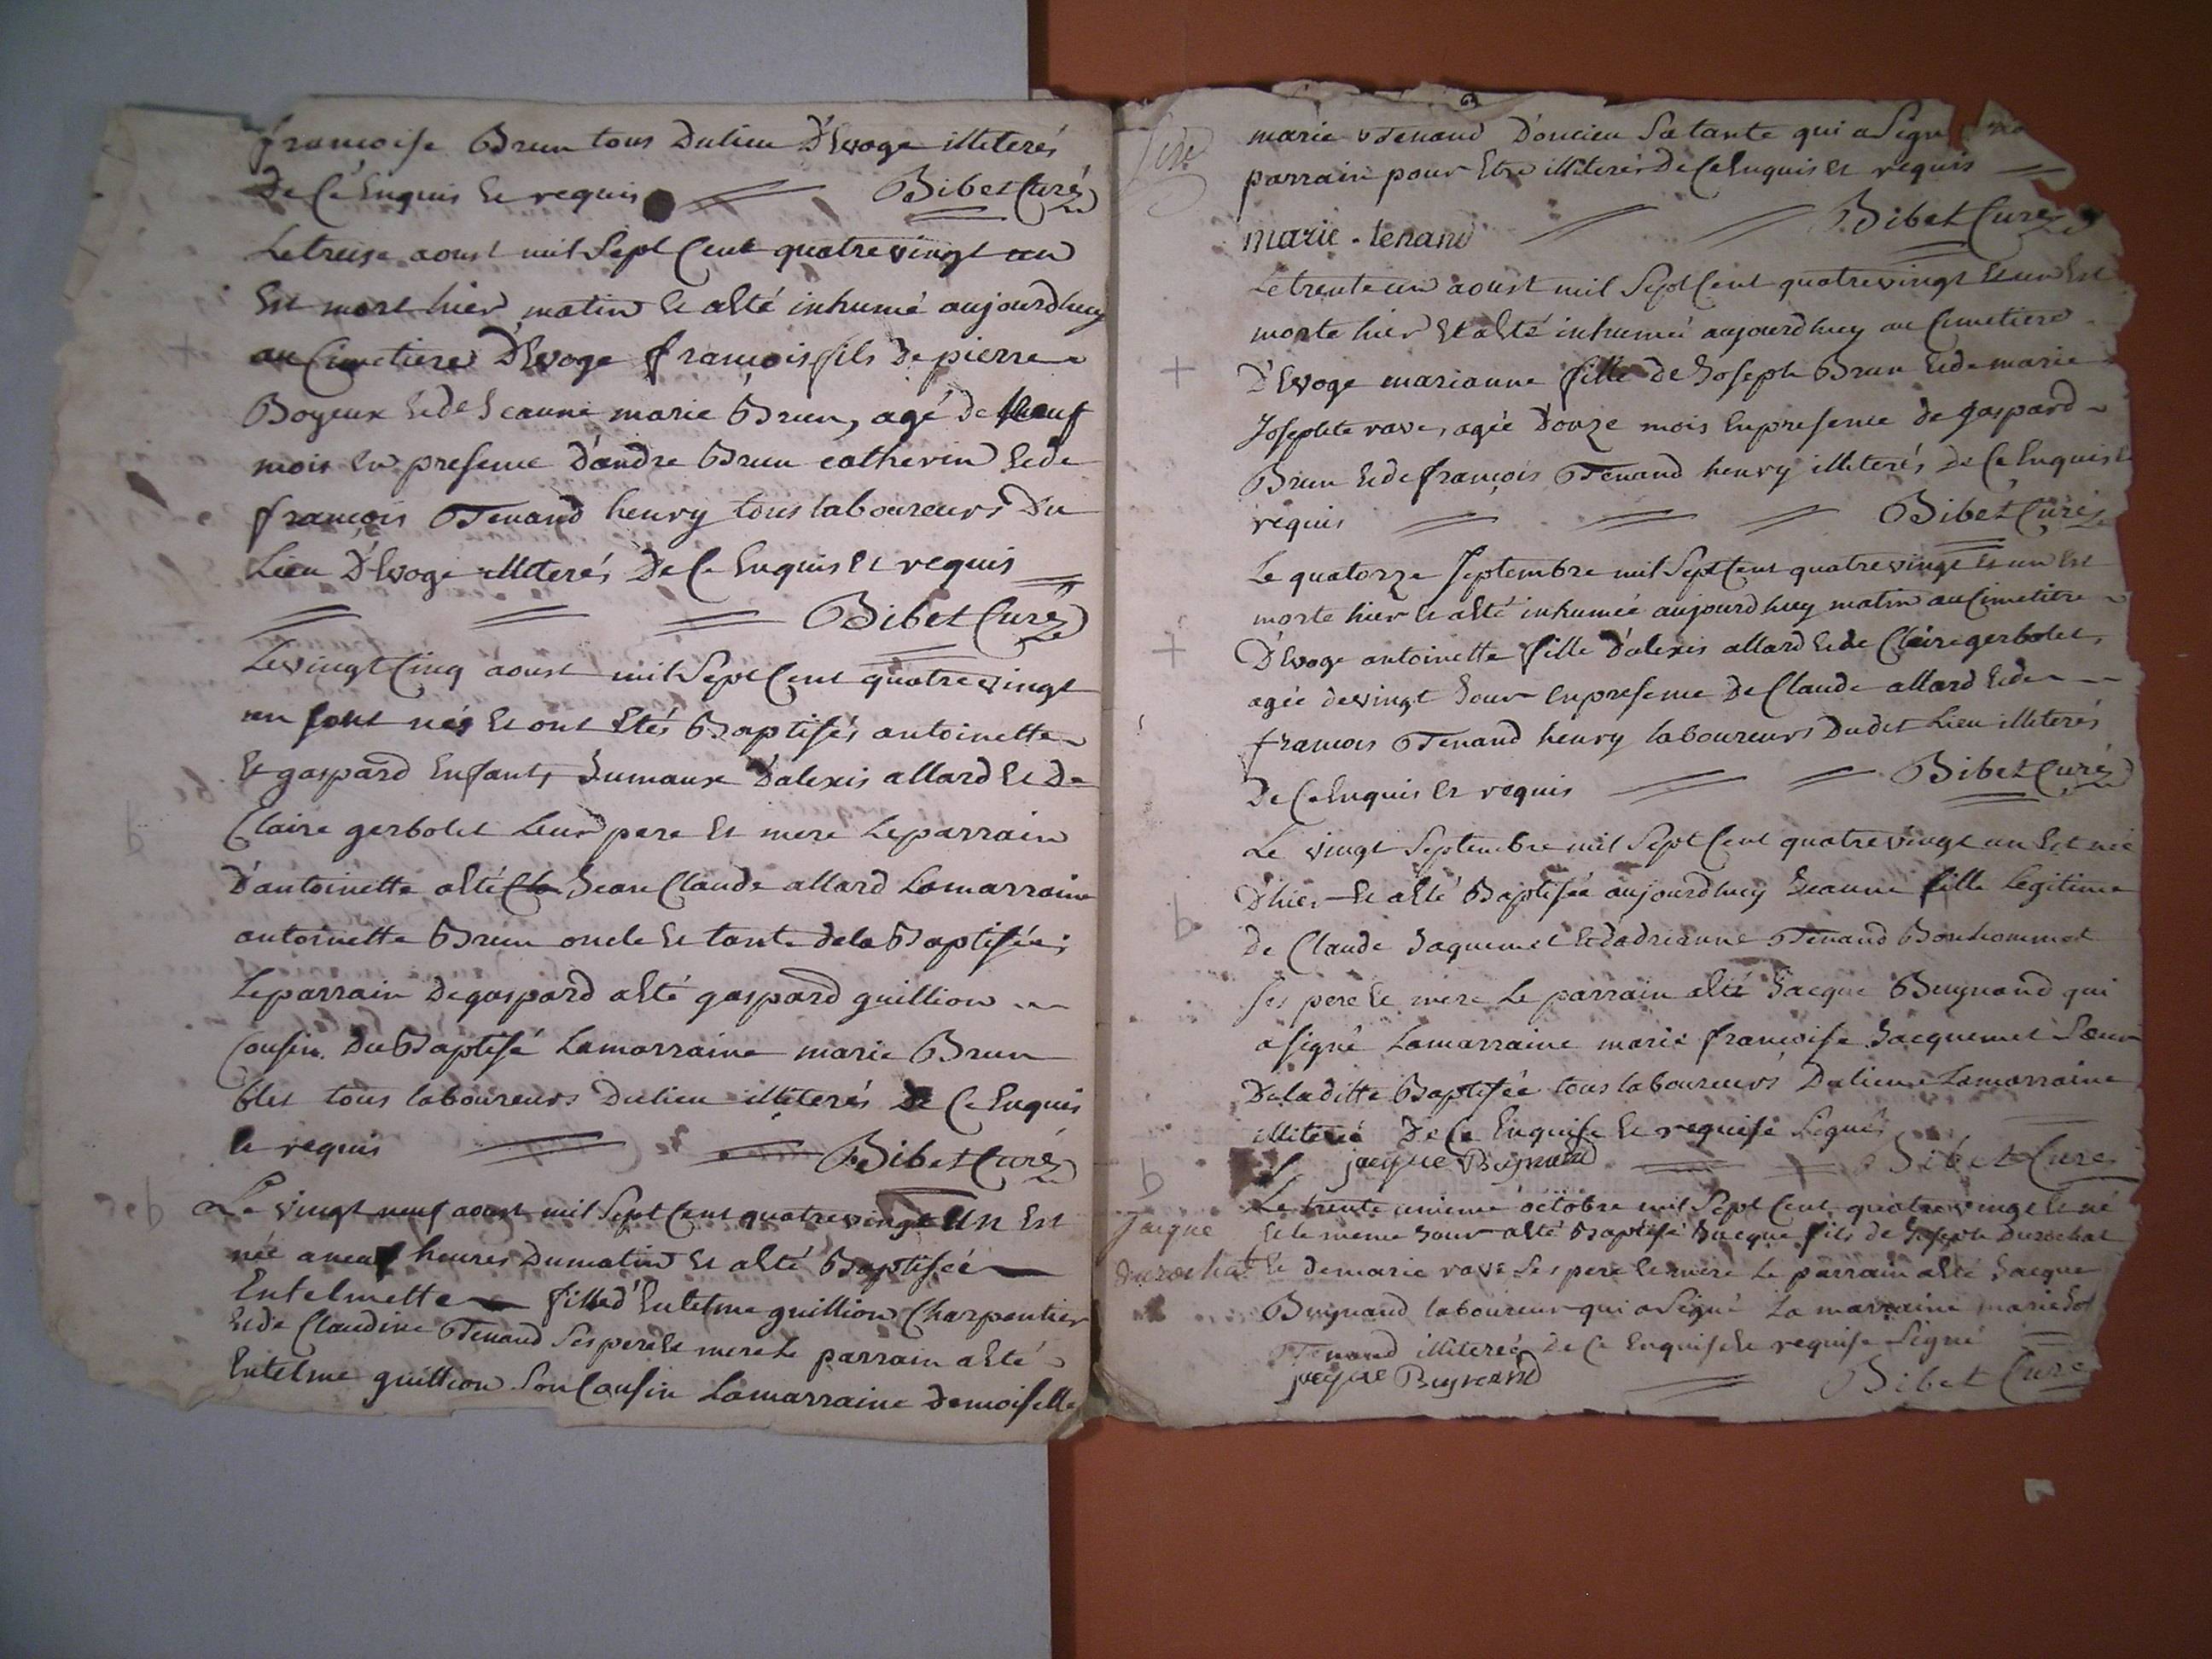 françoise Brun tous Dulieu D'Evoge illiterés
De Cé Enquis Et requis Bibet Curé
Le treise aoust mil Sept Cent quatre vingt un
Est mort hier matin Et a Eté inhumé aujourdhuy
au Cimetiere D'Evoge françois fils De pierre
Boyeux Et de Jeanne marie Brun, agé De Neuf
mois En presence D'andre Brun catherin Et de
françois Tenand henry tous laboureurs Du
Lieu D'Evoge illiterés De Ce Enquis Et requis
Bibet Curé
Le vingt Cinq aoust mil Sept Cent quatre vingt
un sont nés Et ont Etés Baptisés antoinette
Et gaspard Enfants Jumaux D'alexis allard Et De
Claire gerbolet Leur pere Et mere Le parrain
D'antoinette a Eté Jean Claude allard La marraine
antoinette Brun oncle Et tante de la Baptisée;
Le parrain De gaspard a Eté gaspard guillion
Cousin Du Baptisé La marraine marie Brun
blet tous laboureurs Dulieu illiterés De Ce Enquis
Et requis Bibet Curé
b Le vingt neuf aoust mil Sept Cent quatre vingt un Est
née a neuf heures Du matin Et a Eté Baptisée
Entelmette fille d'Entelme guillion Charpentier
Et de Claudine Tenand Ses pere Et mere Le parrain a Eté
Entelme guillion Son Cousin La marraine Demoiselle
marie Tenand D'oncieu Sa tante qui a Signé
parrain pour Etre illiteré De Ce Enquis Et requis
marie tenand Bibet Curé
Le trente un aoust mil Sept Cent quatre vingt Et un Est
morte hier Et a Eté inhumée aujourdhuy au Cimetiere
+ D'Evoge marianne fille De Joseph Brun Et de marie
Josephte rave, agée D'onze mois En presence De gaspard
Brun Et de françois Tenand henry illiterés De Ce Enquis Et
requis Bibet Curé
Le quatorze Septembre mil Sept Cent quatre vingt Et un Est
morte hier Et a Eté inhumée aujourdhuy matin au Cimetiere
+ D'Evoge antoinette fille D'alexis allard Et de Claire gerbolet,
agée de vingt Jour En presence De Claude allard Et de
françois Tenand henry laboureurs Dudit Lieu illiterés
De Ce Enquis Et requis Bibet Curé
Le vingt Septembre mil Sept Cent quatre vingt un Est née
b D'hier Et a Eté Baptisée aujourdhuy Jeanne fille Legitime
de Claude Jaquemet Et d'adrianne Tenand Bonhommot
Ses pere Et mere Le parrain a Eté Jacque Buynand qui
a signé La marraine marie françoise Jacquemet Sœur
De la ditte Baptisée tous laboureurs Dulieu La marraine
illiterée De Ce Enquise Et requise Signé
jacque Buynand Bibet Curé
b Le trente unieme octobre mil Sept Cent quatre vingt Et né
Jacque Et le meme Jour a Eté Baptisé Jacque fils de Joseph Durochat
Durochat Et de marie rave Ses pere Et mere Le parrain a Eté Jacque
Buynand laboureur qui a Signé La marraine marie
Tenand illiterée De Ce Enquise Et requise Signé
jacque Buynand Bibet Curé